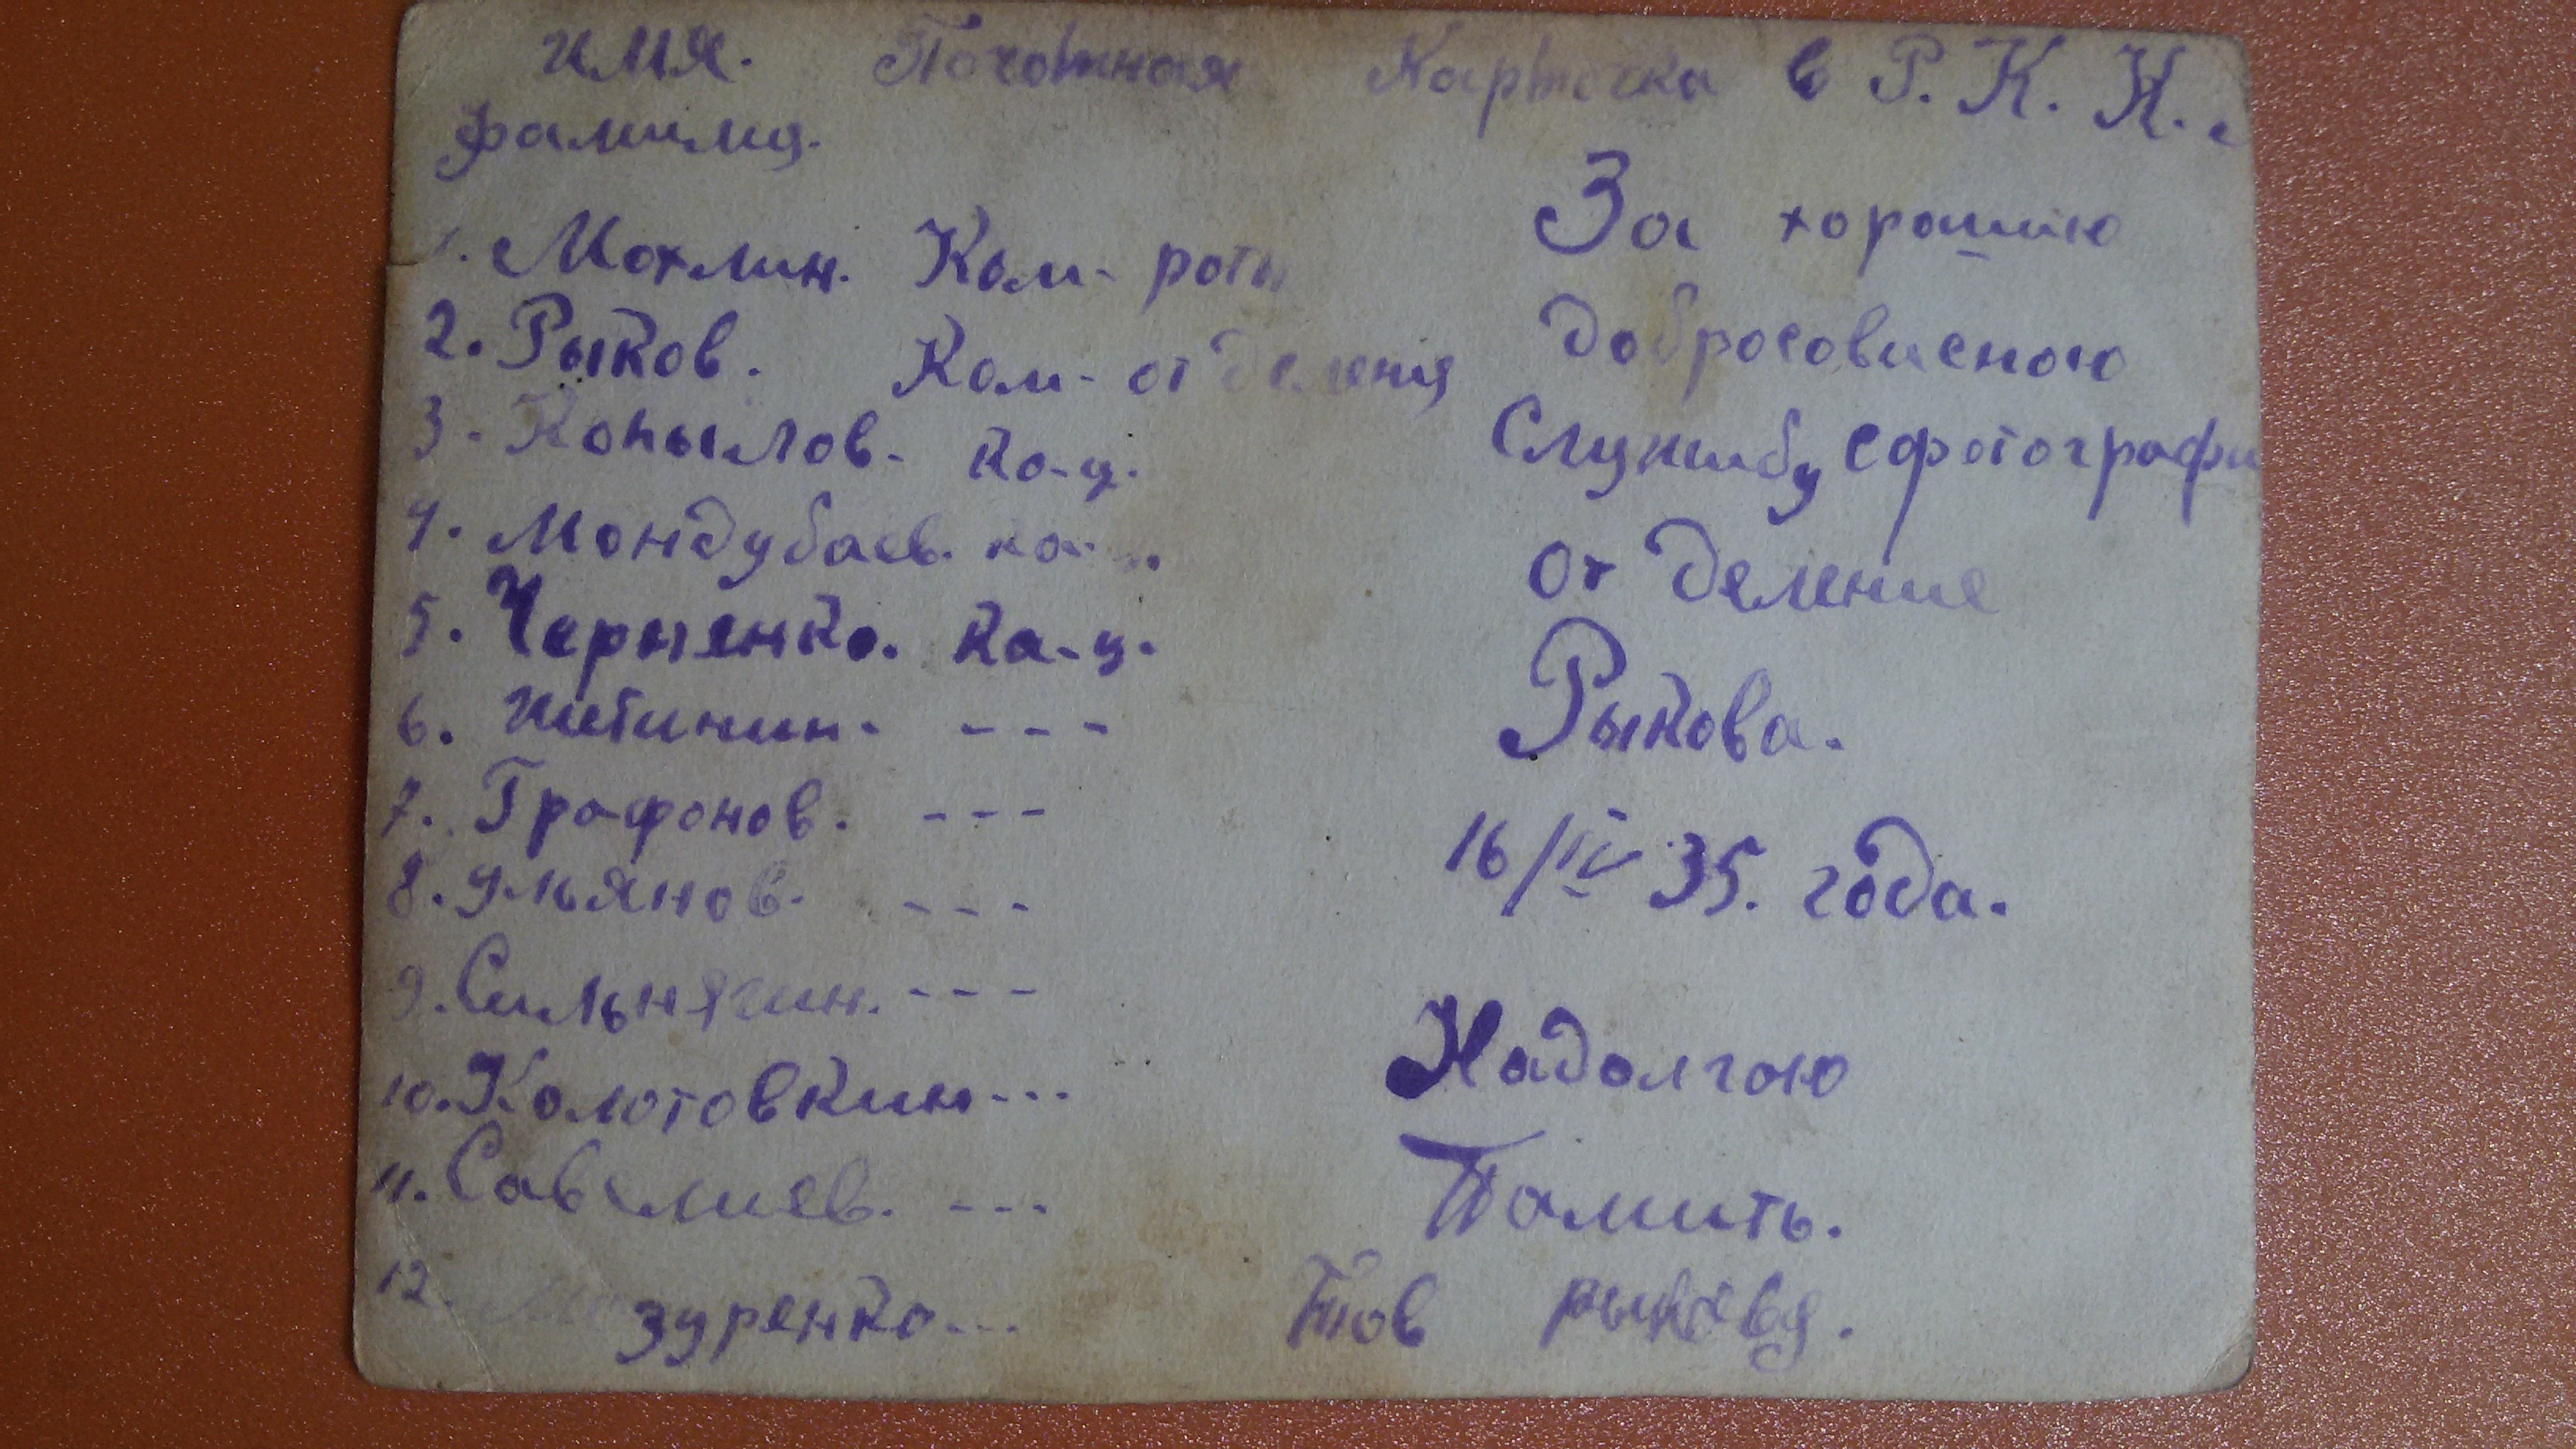 имя. Почотная Карточка в Р. К. К. а
фамилия.
1. Мохлин. Ком- роты
2. Рыков. Ком- от деления
3. Копылов. ко-ц.
4. Мондубаев. ко-
5. Черненко. Ка-ц.
6. - - -
7. Трофонов. - - -
8. Ульянов. - - -
9. - - -
10. Колотовкин - - -
11. Савелиев. - - -
12. Мазуренко - - -
За хорошию
добросовисною
Службу сфотографи
От деление
Рыкова.
16/IV 35. года.
Надолгою
Памить.
Тов рыкова.